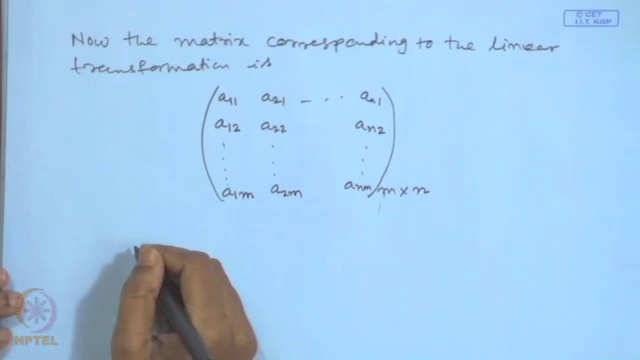 © CET
I.I.T. KGP
Now the matrix corresponding to the linear
transformation is
a11 a21 - ... an1
a12 a22 an2
: : :
a1m a2m anm m×n
NPTEL